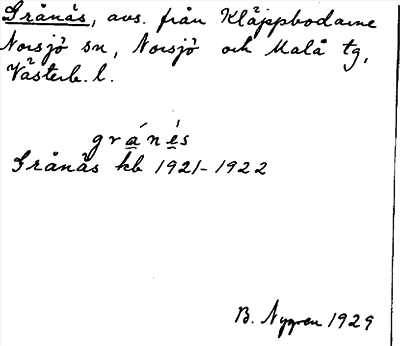 Grånäs, avs. från Kläppbodarne
Norsjö sn, Norsjö och Malå tg,
Västerb. l.
grånés
Grånäs kb 1921-1922
B. Nygren 1929